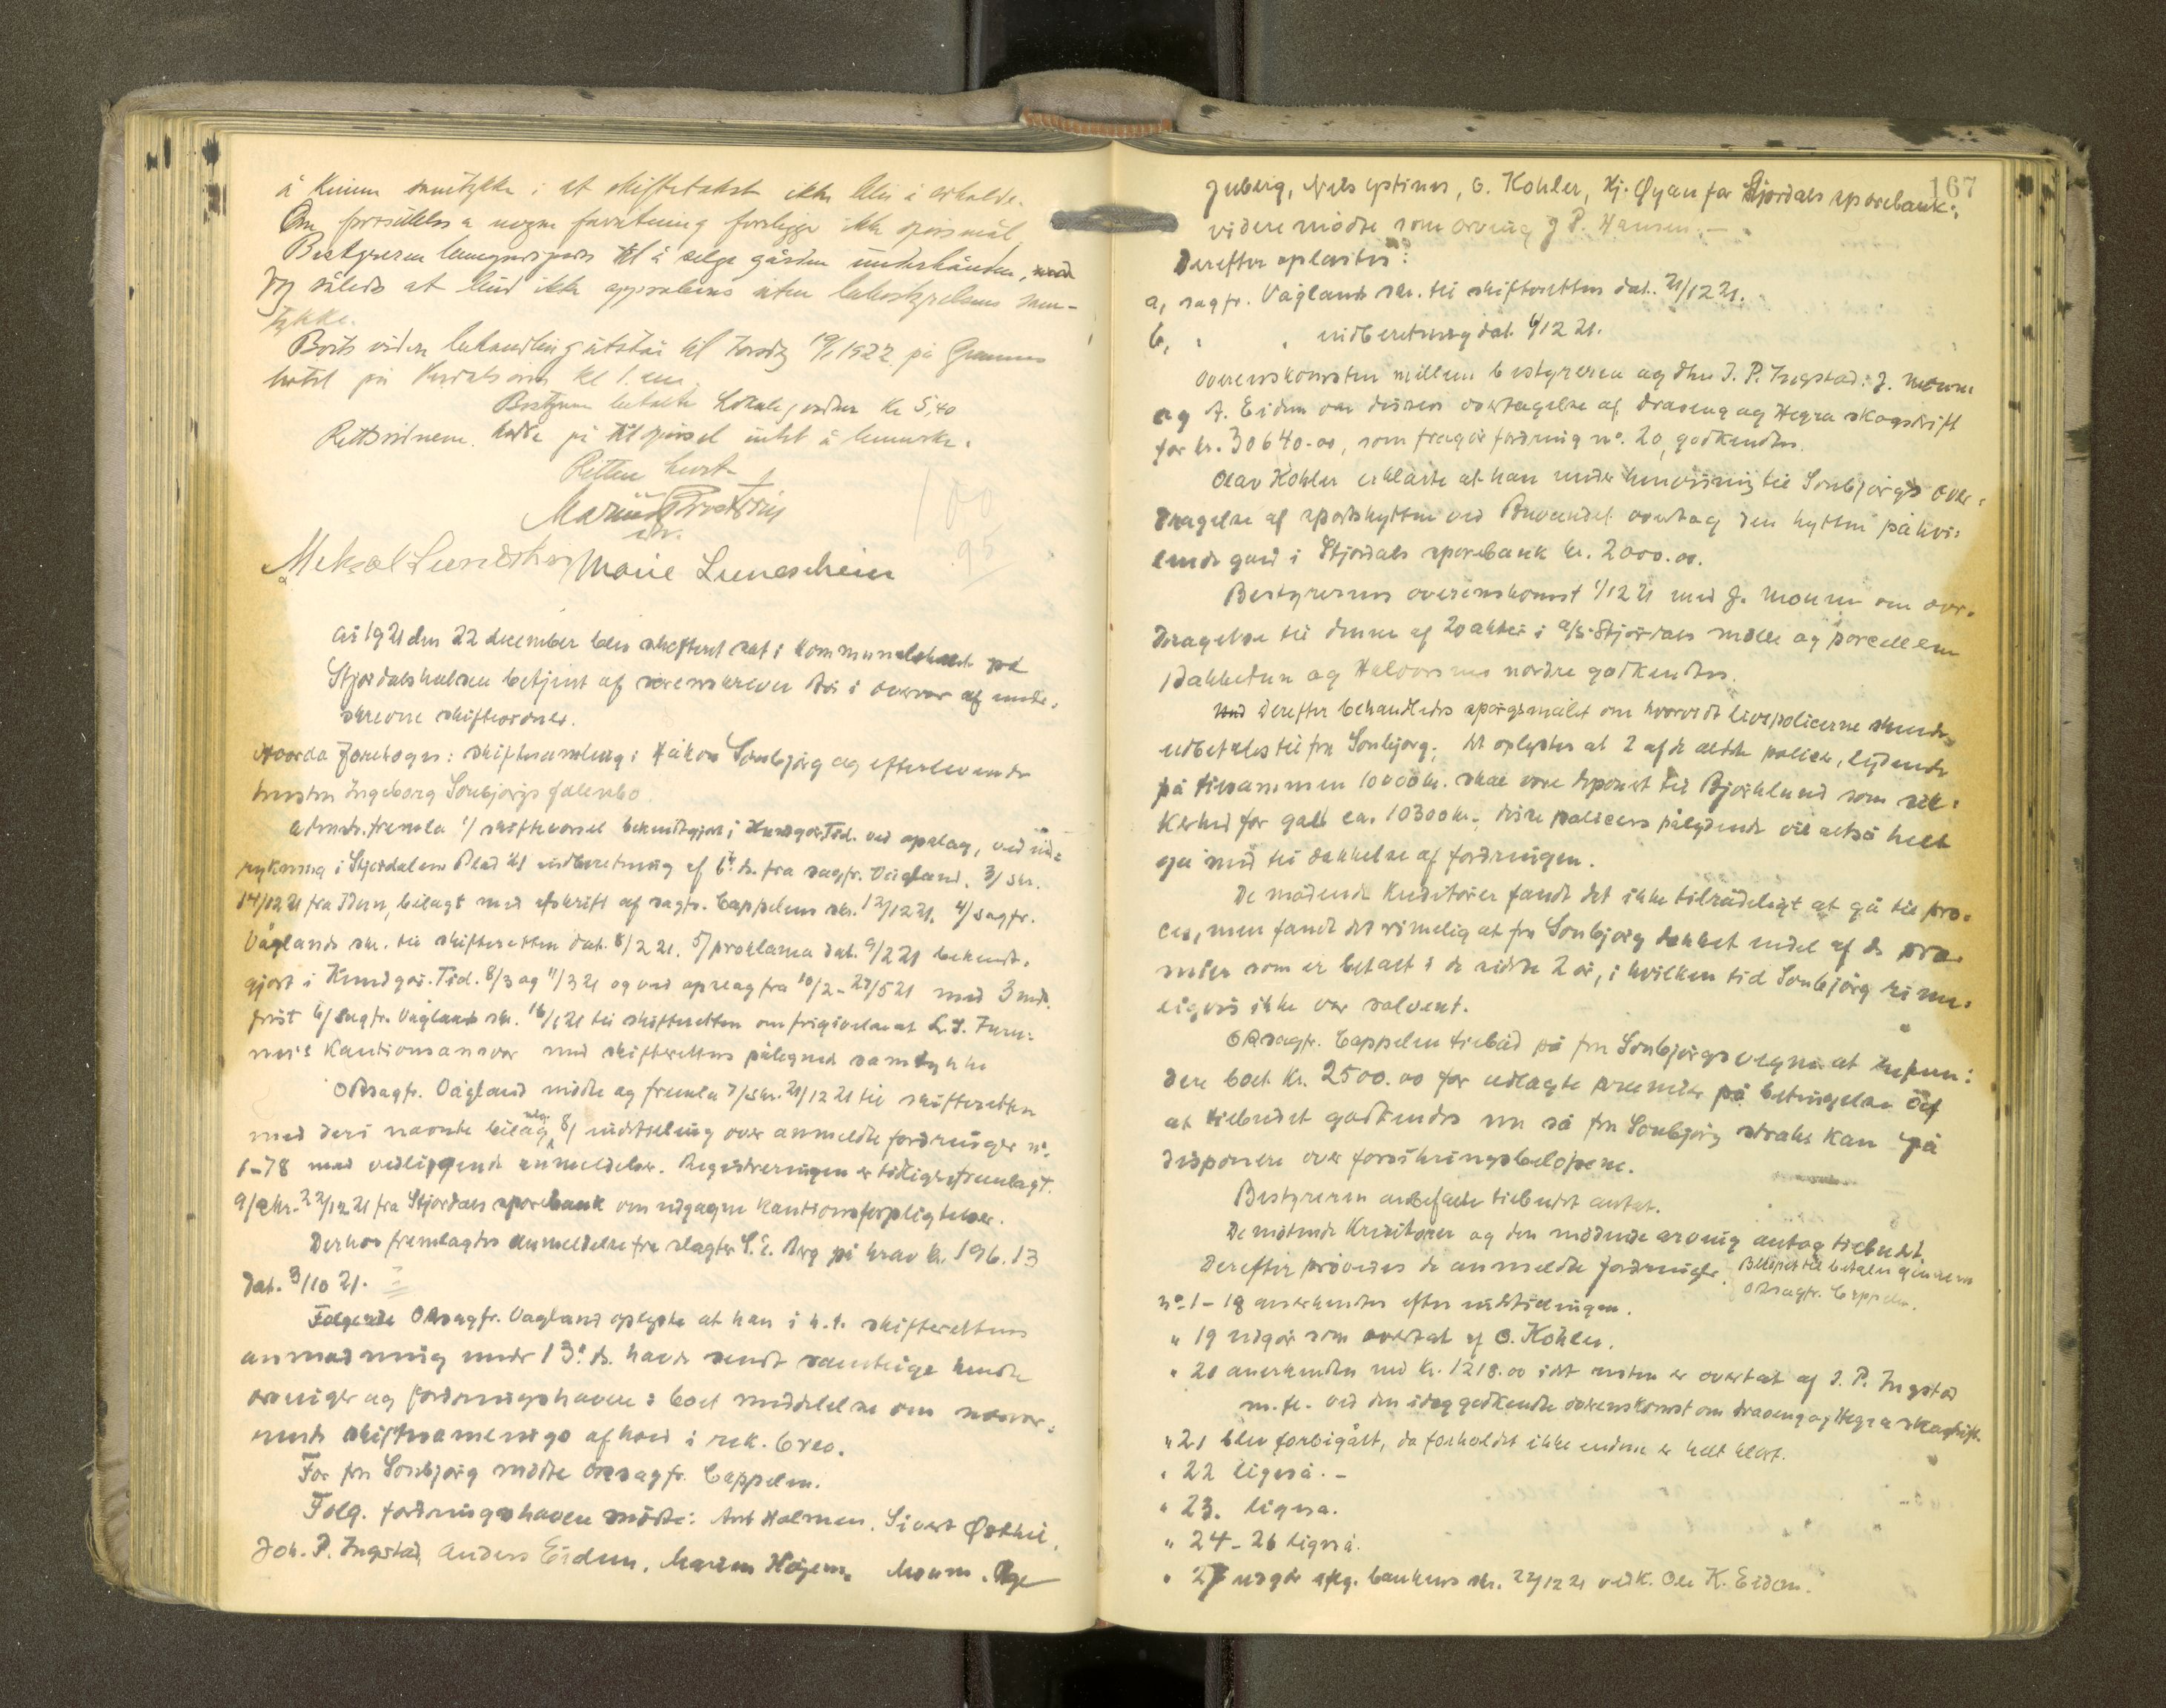 å kunne samtykke i at skiftetakst ikke blir å avholde.
Om forsættelse a nogen forretning foreligger ikke spørsmål.
Bestyreren bemyndiges til å selge gården underhånden,
dog således at bud ikke approberes uten bobestyrelsens sam-
tykke.
Boets videre behandling utstår til Torsdag 19/1 1922 på
hotel på kl 1. em.
Bestyreren betalte Lokale, vidner kr 5,40
Rettsvidnene hadde på tilspørsel intet å bemerke.
Retten hævet
100
95
Marie
År 1921 den 22 december blev skifteret sat i kommunelokalet på
Stjørdalshalsen betjent af sorenskriver i overvær af under-
skrevne skiftevidner.
Hvorda foretoges: skiftesamling i Håkon Sonbjørg og efterlevende
hustru Ingeborg Sonbjørgs fallesbo.
Adminis. fremla 1/ skiftevarsel bekendtgjort i Kundgør. Tid. ved opslag, ved ind-
rykning i Stjørdalens Blad 2/ indberetning af 6. ds. fra sagfr. Vågland. 3/ skr.
14/12 21 fra Idun, bilagt med afskrift af sagfr. Cappelens skr. 12/12 21. 4/ sagfr.
Våglands skr. til skifteretten dat. 8/2 21. 5/ proklama dat. 9/2 21 bekendt-
gjort i Kundgør. Tid. 8/3 og 11/3 21 og ved opslag fra 10/2 - 27/5 21 med 3 mdr.
frist 6/ sagfr. Våglands skr. 16/6 21 til skifteretten om frigivelse at L. I.
kautionsansvar med skifterettens påtegned samtykke
ORsagfr. Vågland mødte og fremla 7/ skr. 21/12 21 til skifteretten
med deri nævnte bilag, 8/ indstilling over anmeldte fordringer no.
1-78 med vedliggende anmeldelser. Registreringen er tidligere fremlagt.
9/ skr. 22/12 21 fra Stjørdals sparebank om udgagne kautionsforpligtelser.
Derhos fremlagdes anmeldelse fra slagter S. E. Berg på krav kr. 196.13
dat. 3/10 21.
Følgende ORsagfr. Vågland oplyste at han i h. t. skifterettens
anmodning under 13. ds. havde sendt samtlige kendte
arvinger og fordringshavere i boet meddelelse om nærvær-
ende skiftesamlings afhold i rek. brev.
For fru Sonbjørg mødte ORsagfr. Cappelen.
Følg. fordringshavere mødte: Arnt Holmen, Sivert Østhil,
Joh. P. Ingstad, Anders Eidum, Moum,
167
Juberg, Nels O. Kohler, Hj. Øyan for Stjørdals sparebank:,
videre mødte som arving J P. Hansen. –
Derefter oplæstes:
a, sagfr. Våglands skr. til skifteretten dat. 21/12 21.
b, " " indberetning dat. 6/12 21.
Overenskomsten mellem bestyreren og dhrr J. P. Ingstad: J. Moum
og A. Eidum om disses overtagelse af Draveng og Hegra skogsdrift
for kr. 30640.00, som fragår fordring no. 20, godkendtes.
Olav Kohler erklærte at han under henvisning til Sonbjørgs over-
dragelse af sportshytten ved overtog den hytten påhvi-
lende gæld i Stjørdals sparebank kr. 2000.00.
Bestyrerens overenskomst 1/12 21 med J. Moum om over-
dragelse til denne af 20 aktier i a/s Stjørdals mølle og parcellen
Bakketun og Halvorsens nordre godkendtes.
Derefter behandledes spørgsmålet om hvorvidt livspolicerne skulde
udbetales til fru Sonbjørg; det oplystes at 2 af de ældste policer, lydende
på tilsammen 10000 kr. skal være deponert til Bjørklund som sik-
kerhed for gæld ca. 10300 kr.; disse policers pålydende vil altså helt
gå med til dækkelse af fordringen.
De mødende kreditorer fandt det ikke tilrådeligt at gå til pro-
ces, men fandt det rimelig at fru Sonbjørg dækket endel af de præ-
mier som er betalt i de sidste 2 år, i hvilken tid Sonbjørg rime-
ligvis ikke var solvent.
ORsagfr. Cappelen tilbød på fru Sonbjørgs vegne at refun-
dere boet kr. 2500.00 for udlagte præmier på betingelse af
at tilbudet godkendes nu så fru Sonbjørg straks kan få
disponere over forsikringsbeløpene.
Bestyreren anbefalte tilbudet antat.
De mødende kreditorer og den mødende arving antog tilbudet.
Beløpet til betales gjennem
ORsagfr. Cappelen.
Derefter prøvedes de anmeldte fordringer.
No. 1 - 18 anerkendtes efter indstillingen.
" 19 udgår som overtat af O. Kohler.
" 20 anerkendtes med kr. 1218.00 idet resten er overtat af J. P. Ingstad
m. fl. ved den idag godkendte overenskomst om Draveng og Hegra skogdrift.
" 21 blev forbigått, da forholdet ikke endnu er helt klart.
" 22 ligeså. –
" 23. ligeså.
" 24 - 26 ligeså.
" 27 udgår iflg. bankens skr. 22/12 21 vedk. Ole K. Eidem.